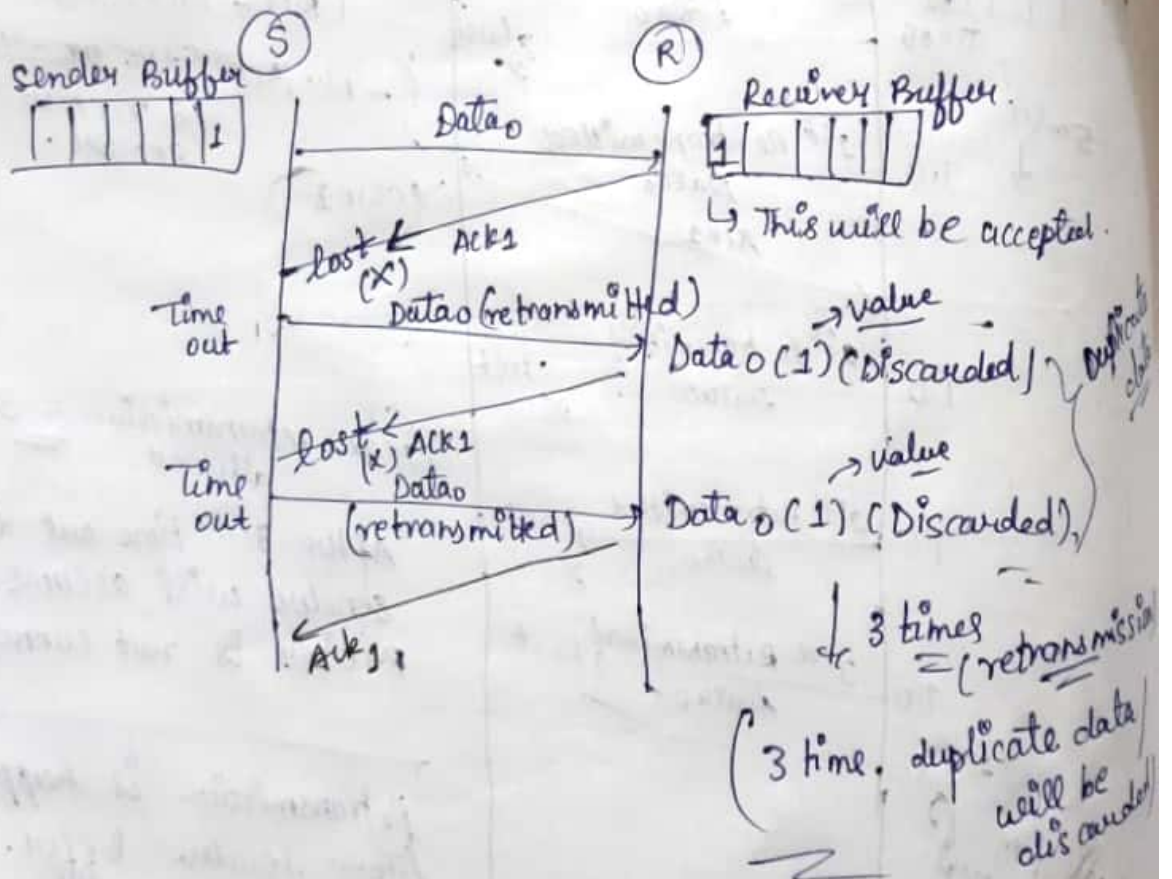 S
R
Sender Buffer
1
Reciever Buffer.
1
Data0
↳ This will be accepted.
Ack1
lost
(X)
Time
out
Data0 (retransmitted)
→ value
Data0 (1) (Discarded)
Duplicate
data
lost
(X)
ACK1
Time
out
Data0
(retransmitted)
→ value
Data0 (1) (Discarded),
Ack1.
↓ 3 times
(retransmission)
(3 time. duplicate data
will be
discarded)